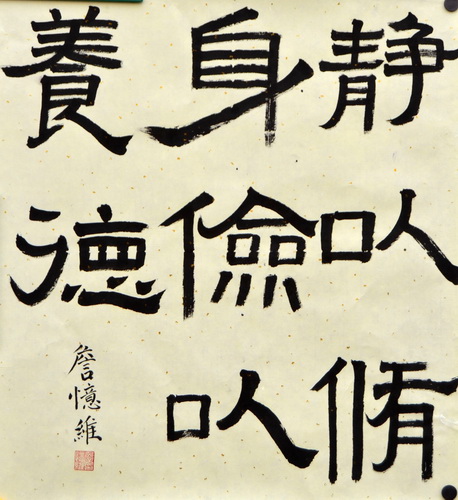 静以脩
身儉以
養德
詹憶維